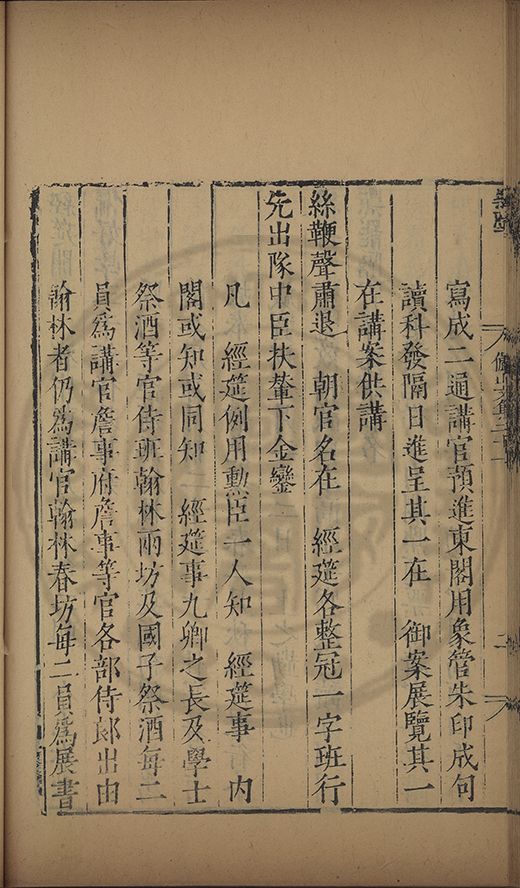 寫成二通講官預進東閣用象管朱印成句
讀科發隔日進呈其一在 御案展覽其一
在講案供講
絲鞭聲肅退 朝官名在 經筵各整冠一字班行
先出隊中臣扶輦下金鑾
凡 經筵例用勲臣一人知 經筵事內
閣或知或同知 經筵事九卿之長及學士
祭酒等官侍班翰林兩坊及國子祭酒每二
員爲講官詹事府詹事等官各部侍郎出由
翰林者仍爲講官翰林春坊每二員爲展書